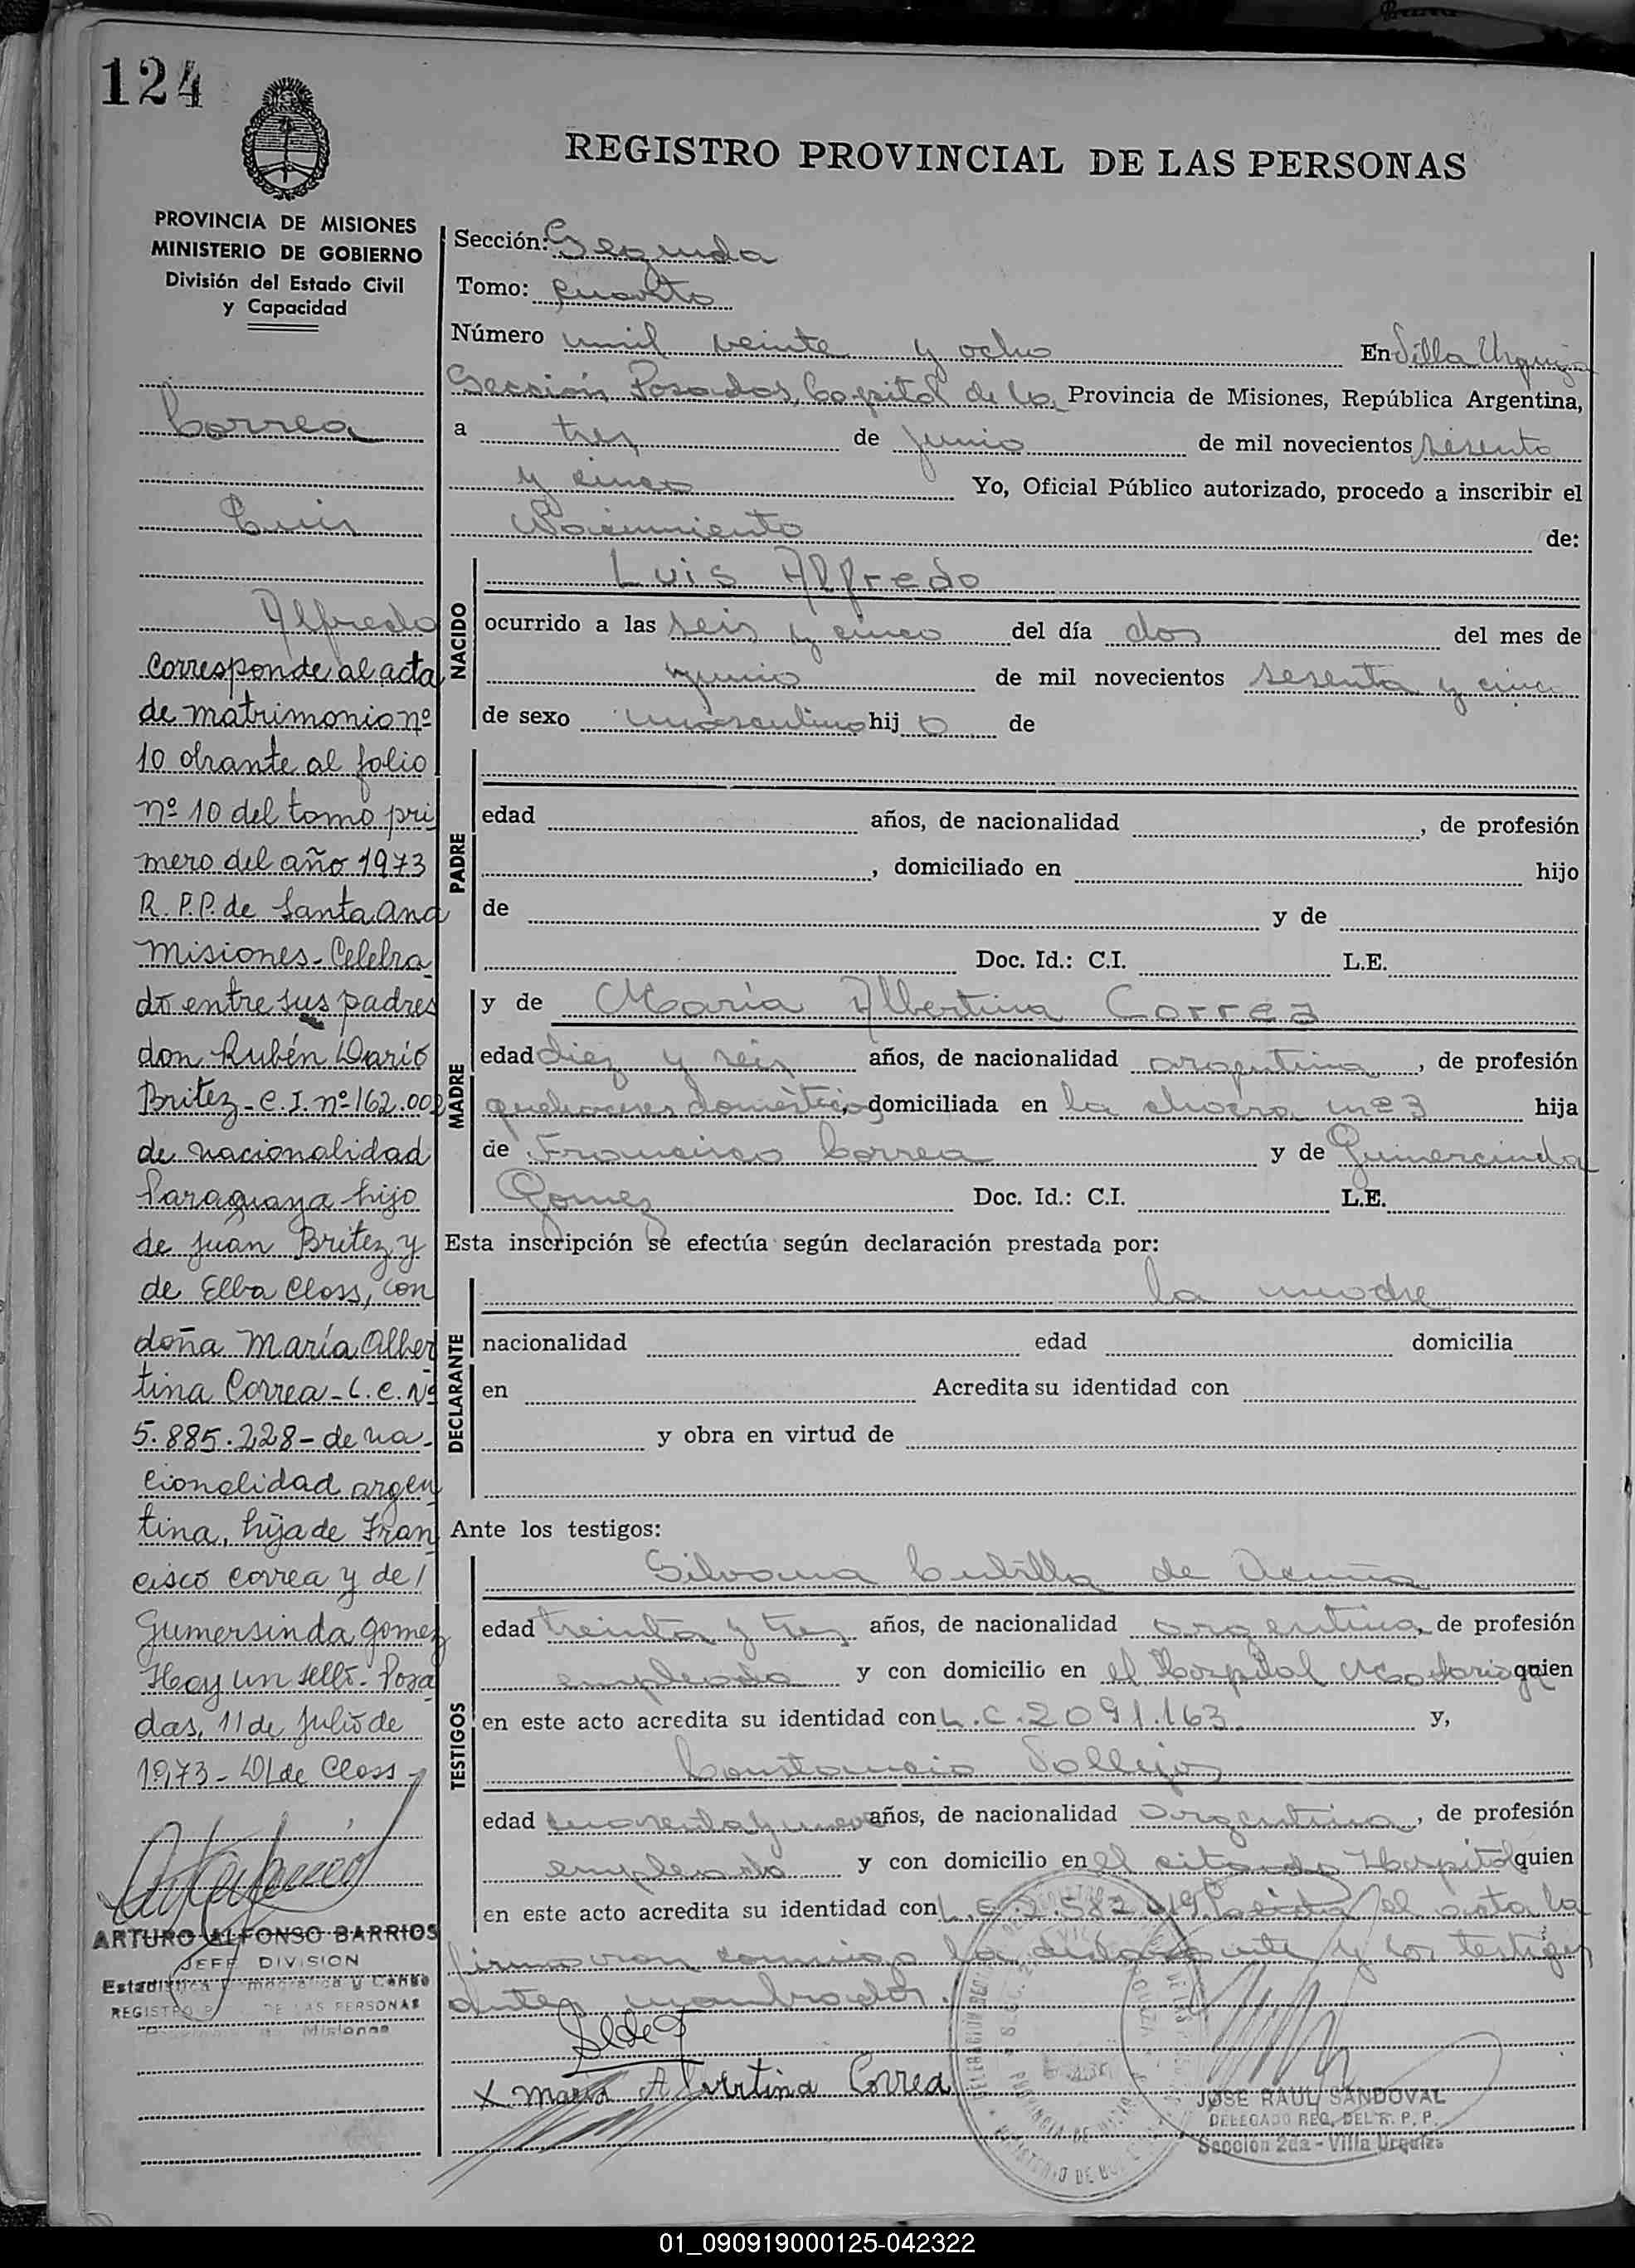 124
REGISTRO PROVINCIAL DE LAS PERSONAS
PROVINCIA DE MISIONES
MINISTERIO DE GOBIERNO
División del Estado Civil
y Capacidad
Correa
Luis
Alfredo
Corresponde al acta
de matrimonio nº
10 obrante al folio
nº 10 del tomo pri
mero del año 1973
R. P.P. de Santa Ana
Misiones - Celebra
do entre sus padres
don Rubén Darío
Britez - C.I. nº 162.002
de nacionalidad
Paraguaya hijo
de Juan Britez y
de Elba Closs, con
doña María Alber
tina Correa - L.C. Nº
5.885.228 - de na-
cionalidad argen
tina, hija de Fran
cisco Correa y de /
Gumersinda Gomez
Hay un sello - Posa
das, 11 de Julio de
1973 - de Closs
ARTURO ALFONSO BARRIOS
JEFE DIVISION
REGISTRO DE LAS PERSONAS
Misiones
Sección: Segunda
Tomo: Cuarto
Número mil veinte y ocho En Villa Urquiza
Sección Posadas, Capital de la Provincia de Misiones, República Argentina,
a tres de junio de mil novecientos sesenta
y cinco Yo, Oficial Público autorizado, procedo a inscribir el
Nacimiento de:
NACIDO
Luis Alfredo
ocurrido a las seis y cinco del día dos del mes de
junio de mil novecientos sesenta y cinco
de sexo masculino hij o de
PADRE
edad años, de nacionalidad , de profesión
, domiciliado en hijo
de y de
Doc. Id.: C.I. L.E.
MADRE
y de María Albertina Correa
edad diez y seis años, de nacionalidad argentina, de profesión
quehaceres domésticos, domiciliada en la chacra nº 3 hija
de Francisco Correa y de Gumercinda
Gomez Doc. Id.: C.I. L.E.
Esta inscripción se efectúa según declaración prestada por:
DECLARANTE
la madre
nacionalidad edad domicilia
en Acredita su identidad con
y obra en virtud de
Ante los testigos:
TESTIGOS
Silvana de Acuña
edad treinta y tres años, de nacionalidad argentina, de profesión
empleada y con domicilio en el Hospital Madariaga quien
en este acto acredita su identidad con L.C. 2091.163 y,
Constancio Vallejos
edad cuarenta y nueve años, de nacionalidad argentina, de profesión
empleado y con domicilio en el citado Hospital quien
en este acto acredita su identidad con Leída el acta la
firmaron conmigo la declarante y los testigos
antes nombrados.
x Maria Alvertina Correa
JOSE RAUL SANDOVAL
DELEGADO REG. DEL R. P. P.
Sección 2da - Villa Urquiza
01_090919000125-042322